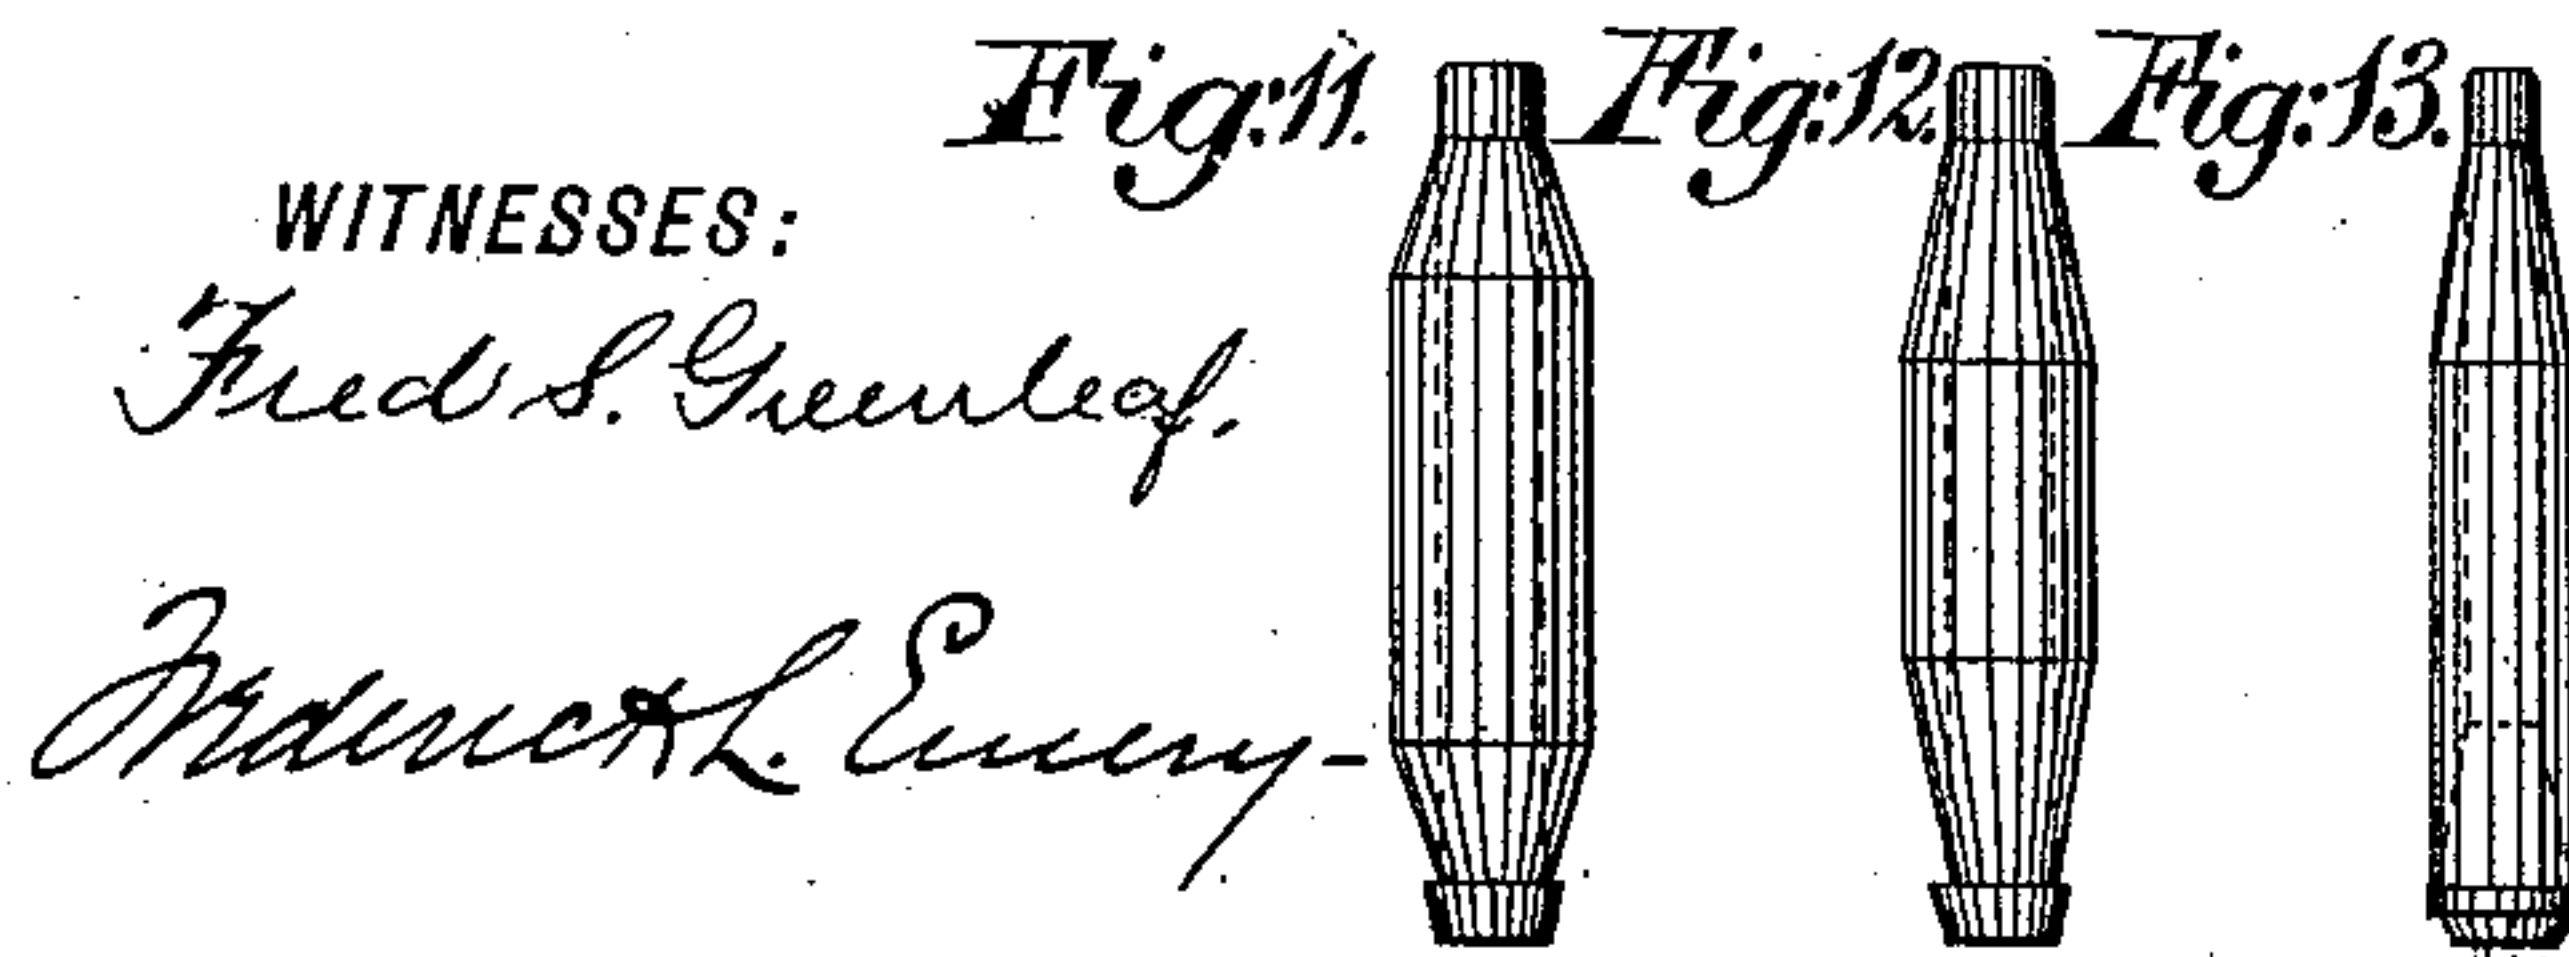 Fig:11. Fig:12. Fig:13.
WITNESSES:
Fred S. Greenleaf.
Frederick L. Emery-